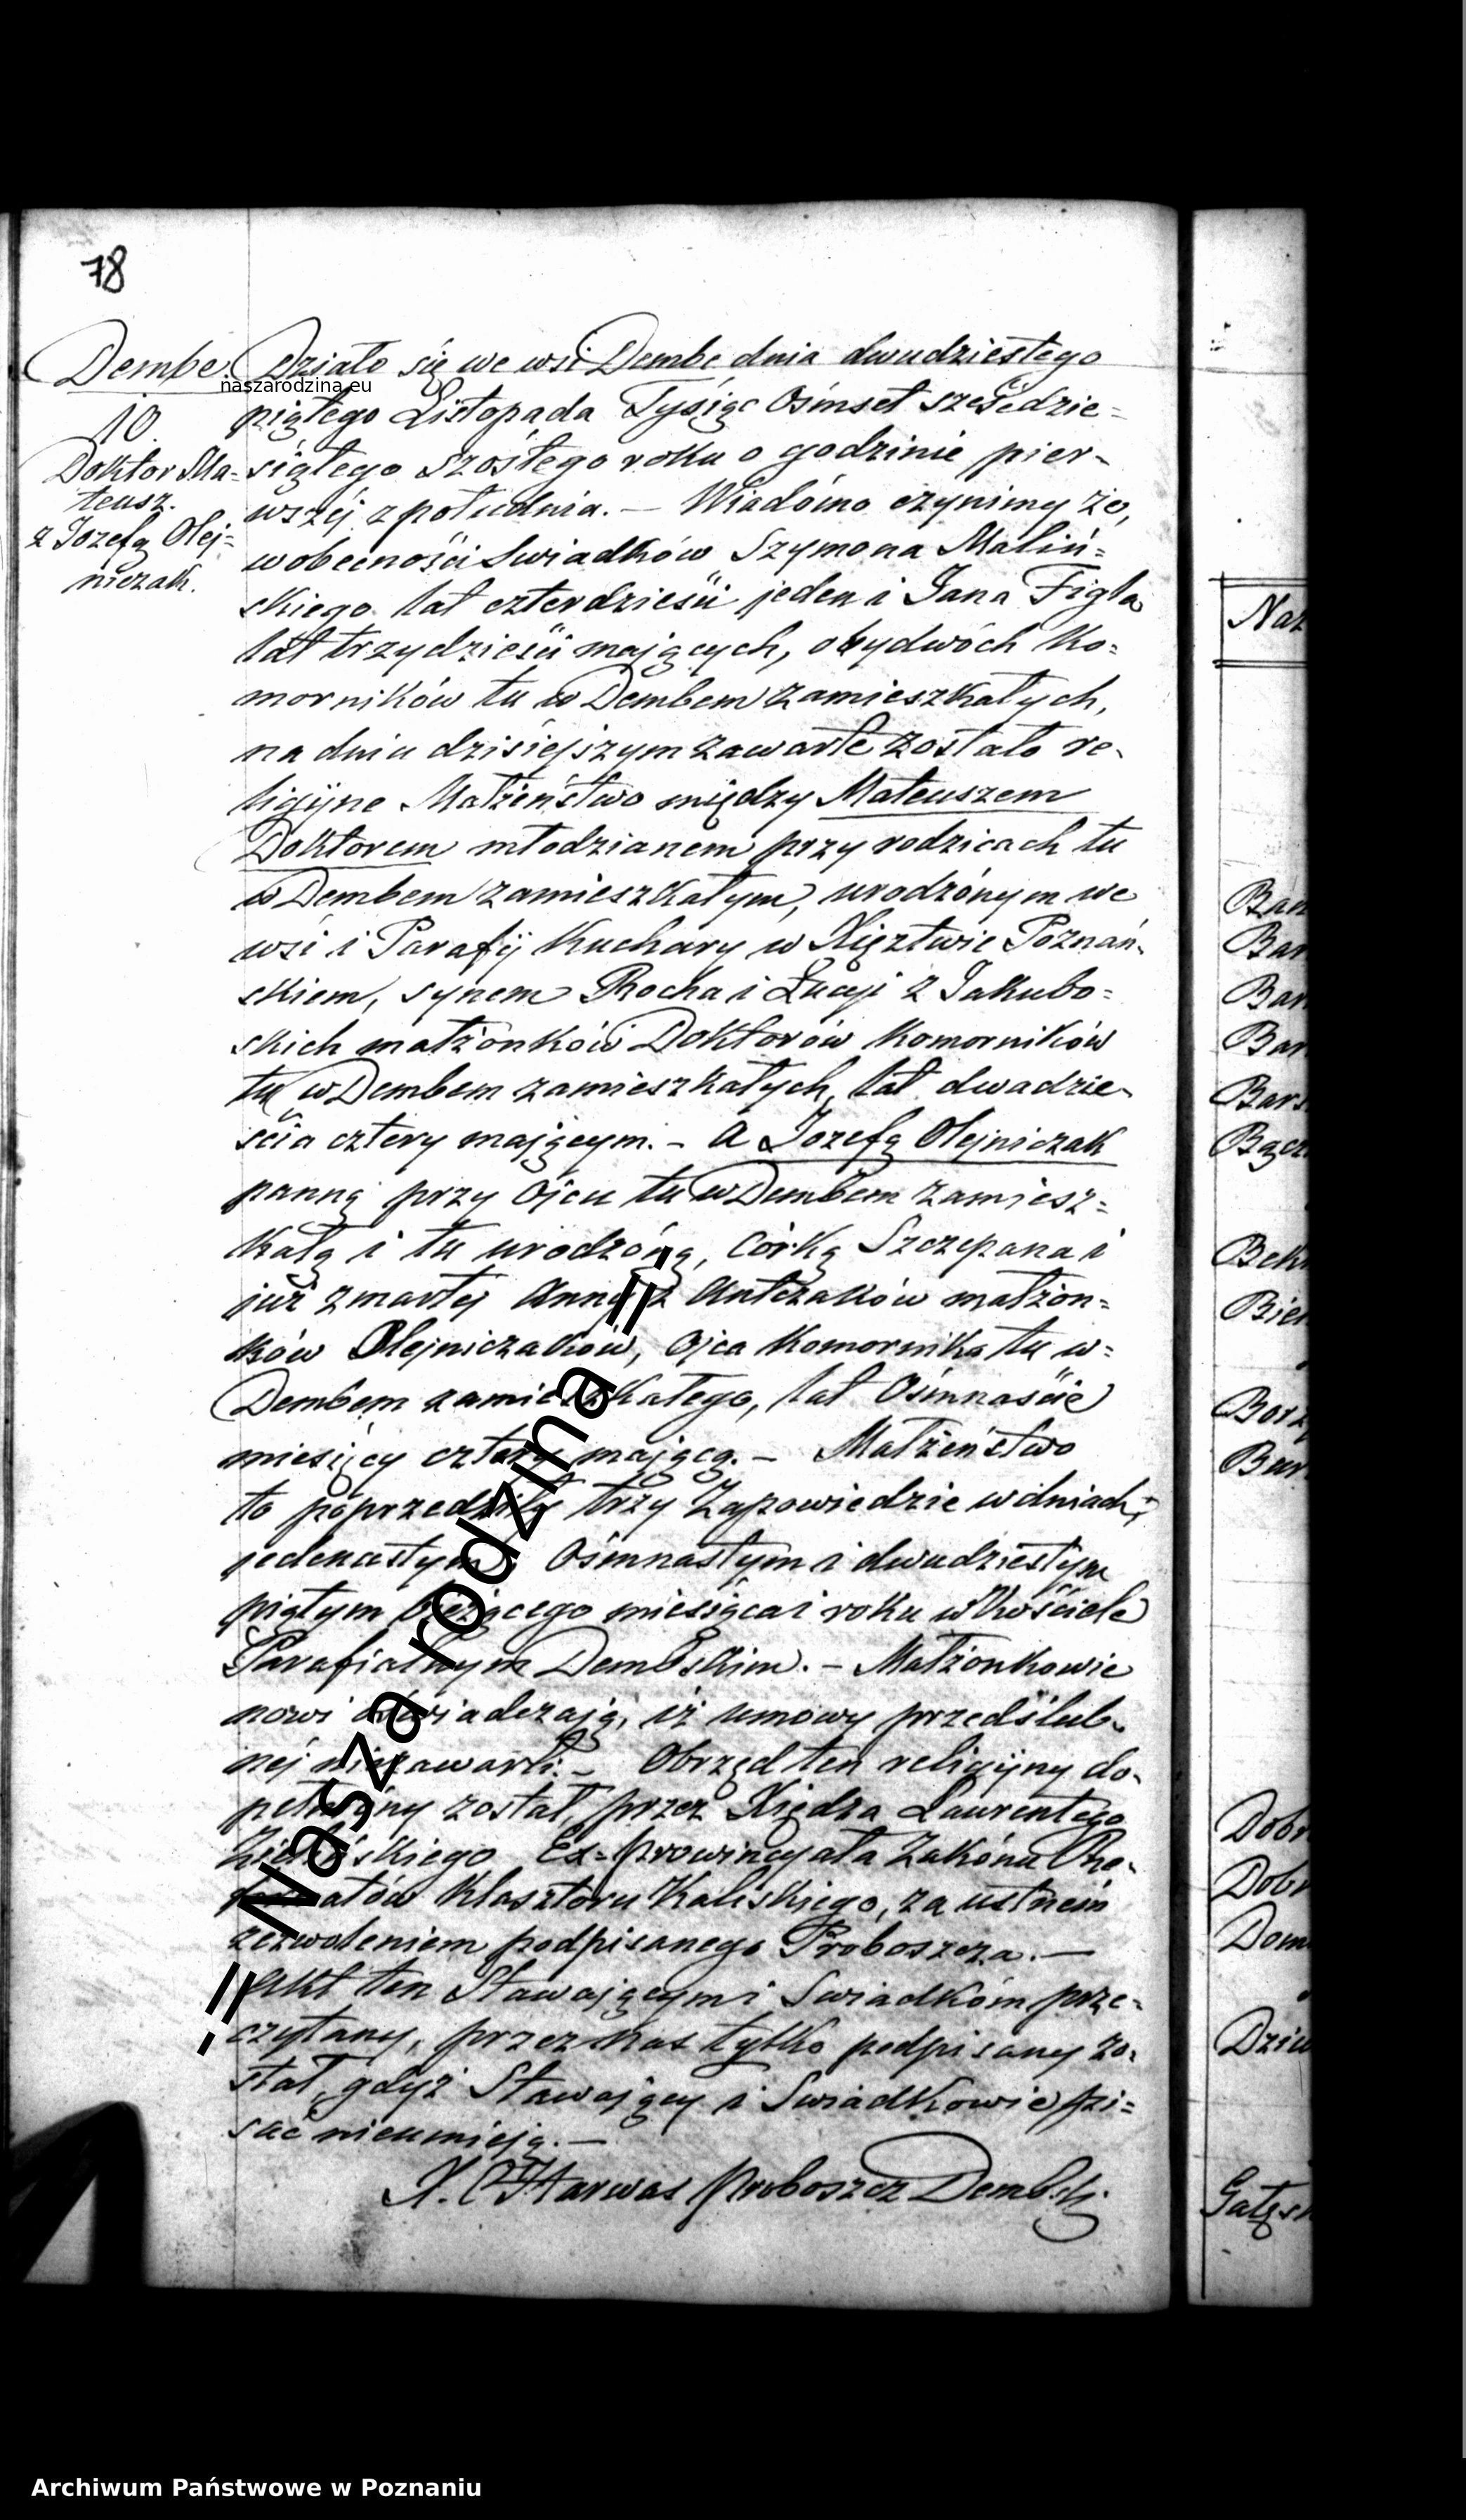 78
Dembe
10.
Doktor Ma-
teusz.
z Jozefą Olej-
niczak.
Działo się we wsi Dembe dnia dwudziestego
naszarodzina.eu
piątego Listopada Tysiąc Ośmset sześćdzie=
siątego szóstego roku o godzinie pier-
wszéj z południa. — Wiadómo czynimy że,
w obecności Swiadków Szymona Maliń=
skiego lat czterdzieści jeden i Jana Figla
lat trzydzieści mających, obydwóch Ko=
morników tu w Dembem zamieszkałych,
na dniu dzisiejszym zawarte zostało re-
ligijne Małżeństwo między Mateuszem
Doktorem młodzianem przy rodzicach tu
w Dembem zamieszkałym, urodzónym we
wsi i Parafij Kuchary w Xięztwie Poznań-
skiem, synem Rocha i Łucyi z Jakubo=
skich małżonków Doktorów Komorników
tu w Dembem zamieszkałych, lat dwadzie-
ścia cztery mającym. – A Jozefą Olejniczak
panną przy Ojcu tu w Dembem zamiesz=
kałą i tu urodzóną, Córką Szczepana i
już zmarłej Anny z Antczaków małżon=
ków Olejniczaków, Ojca Komornika tu w=
Dembem zamieszkałego, lat Ośmnaście
miesięcy cztery mającą. – Małżeństwo
to poprzedziły trzy Zapowiedzie w dniach;
jedenastym, Ośmnastym i dwudziestym
piątym bieżącego miesiąca i roku w Kościele
Parafialnym Dembskim. – Małżonkowie
nowi oświadczają, iż umowy przedślub-
néj niezawarli. – Obrzęd ten religijny do-
pełniony został, przez Xiędza Laurentego
Ex=prowincyała Zakónu Re-
formatów Klasztoru Kaliskiego, za ustném
zezwoleniem podpisanego Proboszcza. —
Akt ten Stawającym i Swiadkóm prze=
czytany, przez nas tylko podpisany zo-
stał, gdyż Stawający i Swiadkowie pi=
sać nieumieją. —
X. Harwas Proboszcz Dembski
.:: Nasza rodzina ::
Naz
Ban
Bar
Bar
Bar
Bars
Bącz
Bek
Bie
Borz
Bur
Dobr
Dobr
Dom
Dziu
Gałęs
Archiwum Państwowe w Poznaniu